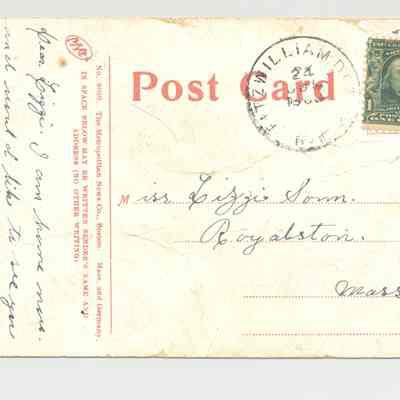 Dear Lizzie. I am home now.
and would like to see you
No. 8000. The Metropolitan News Co., Boston. Mass. and Germany.
IN SPACE BELOW MAY BE WRITTEN SENDER'S NAME AND
ADDRESS (NO OTHER WRITING)
Post Card
FITZWILLIAM
24
Miss Lizzie Sonn.
Royalston.
Mass
1